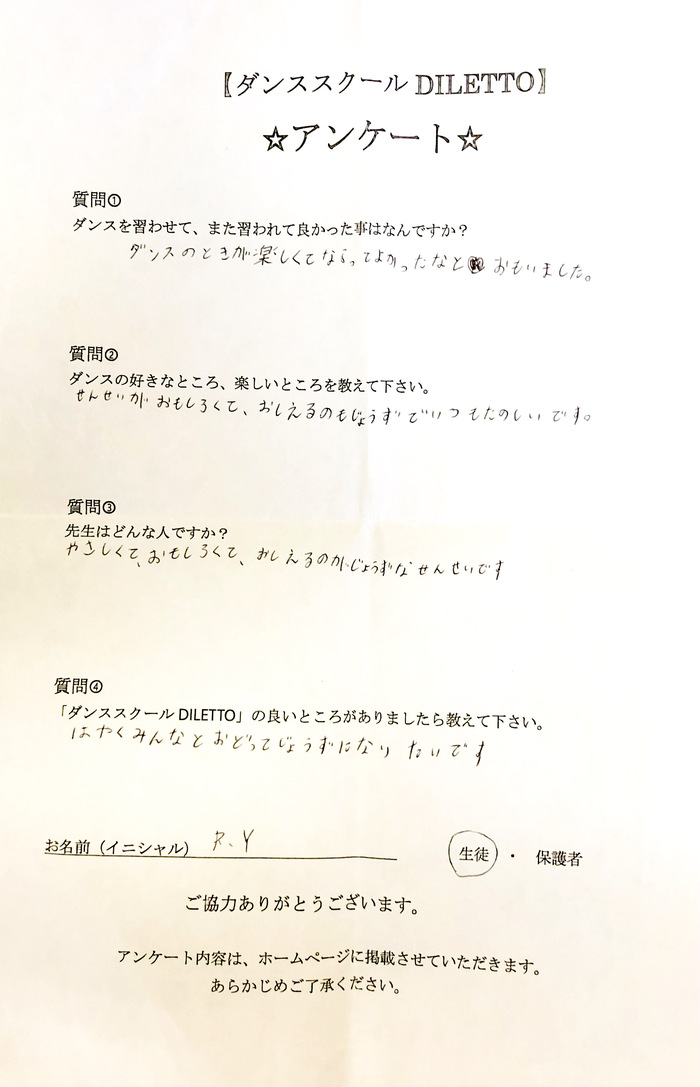 【ダンススクール DILETTO】
☆アンケート☆
質問①
ダンスを習わせて、また習われて良かった事はなんですか？
ダンスのときが楽しくてならってよかったなと おもいました。
質問②
ダンスの好きなところ、楽しいところを教えて下さい。
せんせいが おもしろくて、おしえるのもじょうずでいつもたのしいです。
質問③
先生はどんな人ですか？
やさしくて、おもしろくて、おしえるのがじょうずなせんせいです
質問④
「ダンススクール DILETTO」の良いところがありましたら教えて下さい。
はやくみんなとおどってじょうずになりたいです
お名前（イニシャル） R、Y 生徒 ・ 保護者
ご協力ありがとうございます。
アンケート内容は、ホームページに掲載させていただきます。
あらかじめご了承ください。